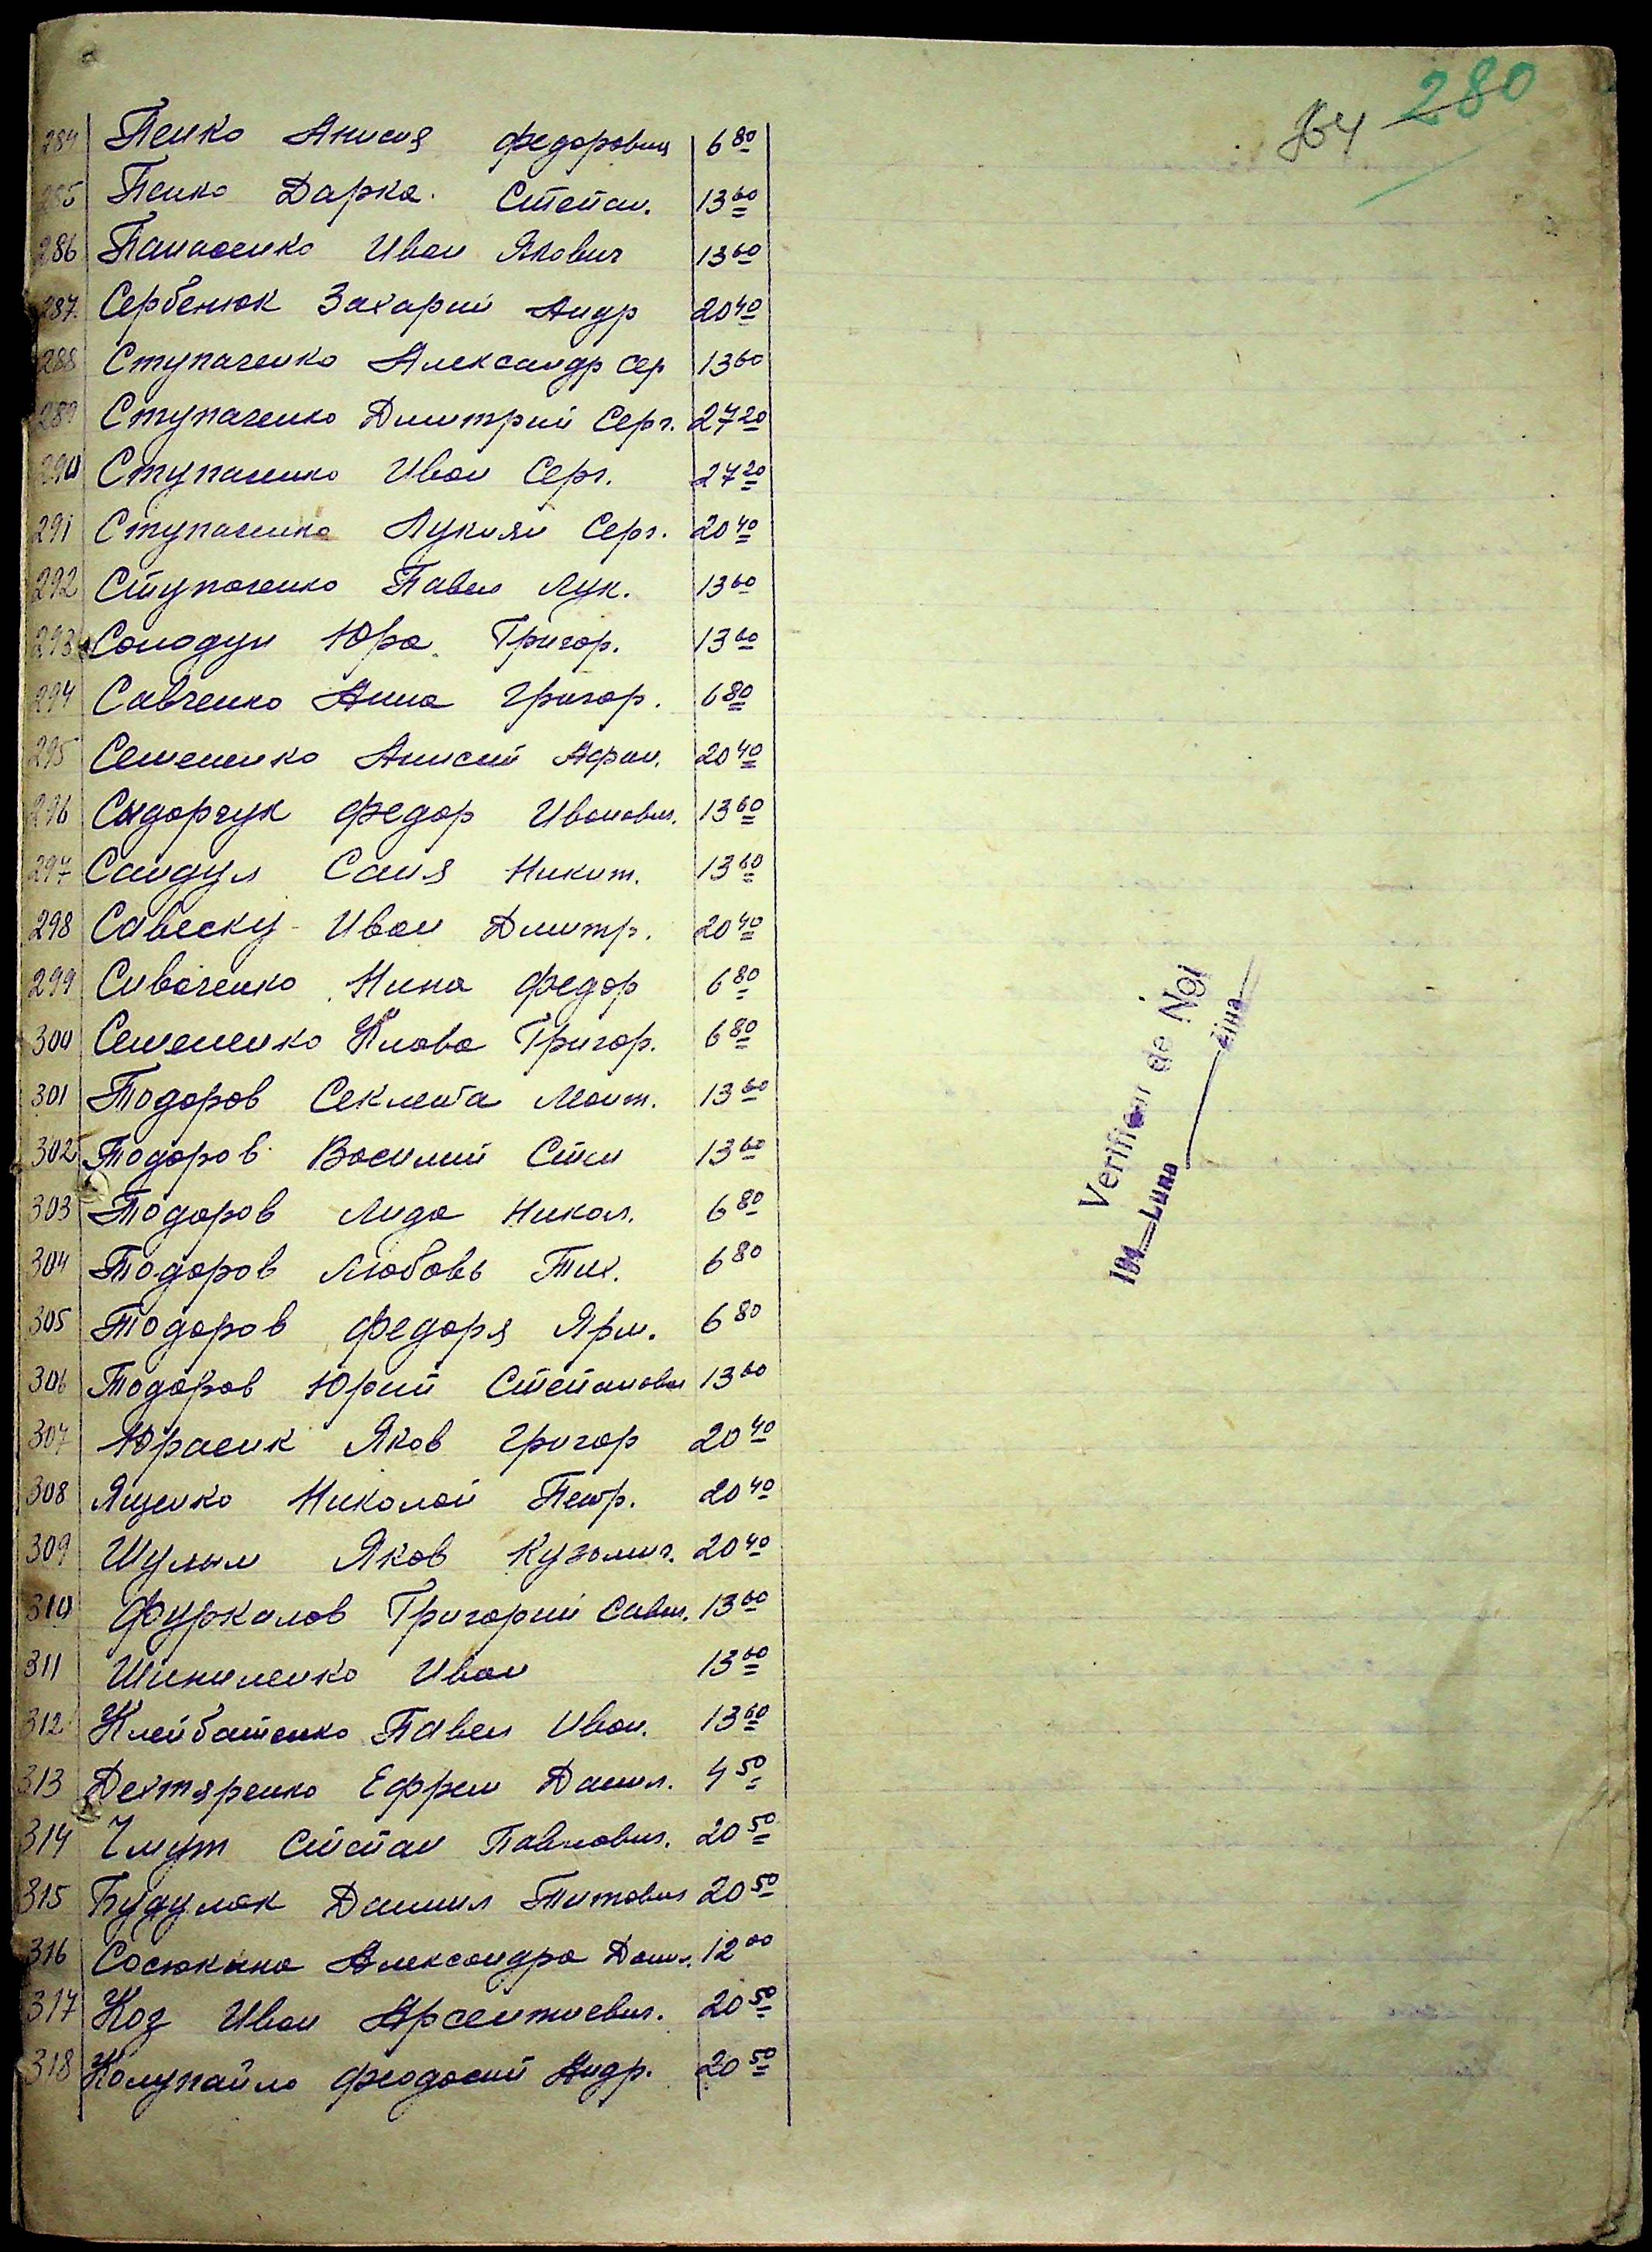 280
284 Пенко Анисия Федоровна 6 80
285 Пенко Дарка. Степан. 13 60
286 Панасенко Иван Якович 13 60
287. Сербенюк Захарий Андр 20 40
288 Ступаченко Александр Сер 13 60
289 Ступаченко Дмитрий Серг. 27 20
290 Ступаченко Иван Серг. 27 20
291 Ступаченко Лукиян Серг. 20 40
292 Ступаченко Павел Лук. 13 60
293 Солодун Юра. Григор. 13 60
294 Савченко Анна Григор. 6 80
295 Семененко Анисий Афан. 20 40
296 Сыдорчук Федор Иванович. 13 60
297 Сандул Саня Никит. 13 60
298 Савеску Иван Дмитр. 20 40
299 Сиваченко Нина Федор 6 80
300 Семененко Клава Григор. 6 80
301 Тодоров Секлета Леонт. 13 60
302 Тодоров Василий 13 60
303 Тодоров Лида Никол. 6 80
304 Тодоров Любовь Тих. 6 80
305 Тодоров Федоря Ярм. 6 80
306 Тодоров Юрий Степанови 13 60
307 Юрасик Яков Григор 20 40
308 Ященко Николай Петр. 20 40
309 Шулым Яков Кузьмич. 20 40
310 Фуркалов Григорий Савел. 13 60
311 Шиниленко Иван 13 60
312 Клейбатенко Павел Иван. 13 60
313 Дехтяренко Ефрем Данил. 4 50
314 Чмут Степан Павлович. 20 50
315 Будулак Даниил Титович 20 50
316 Сосюкина Александра Данил. 12 00
317 Коз Иван Арсентиевич. 20 50
318 Колупайло Феодосий Андр. 20 50
Verificat de Noi
194__ Luna ____ Ziua